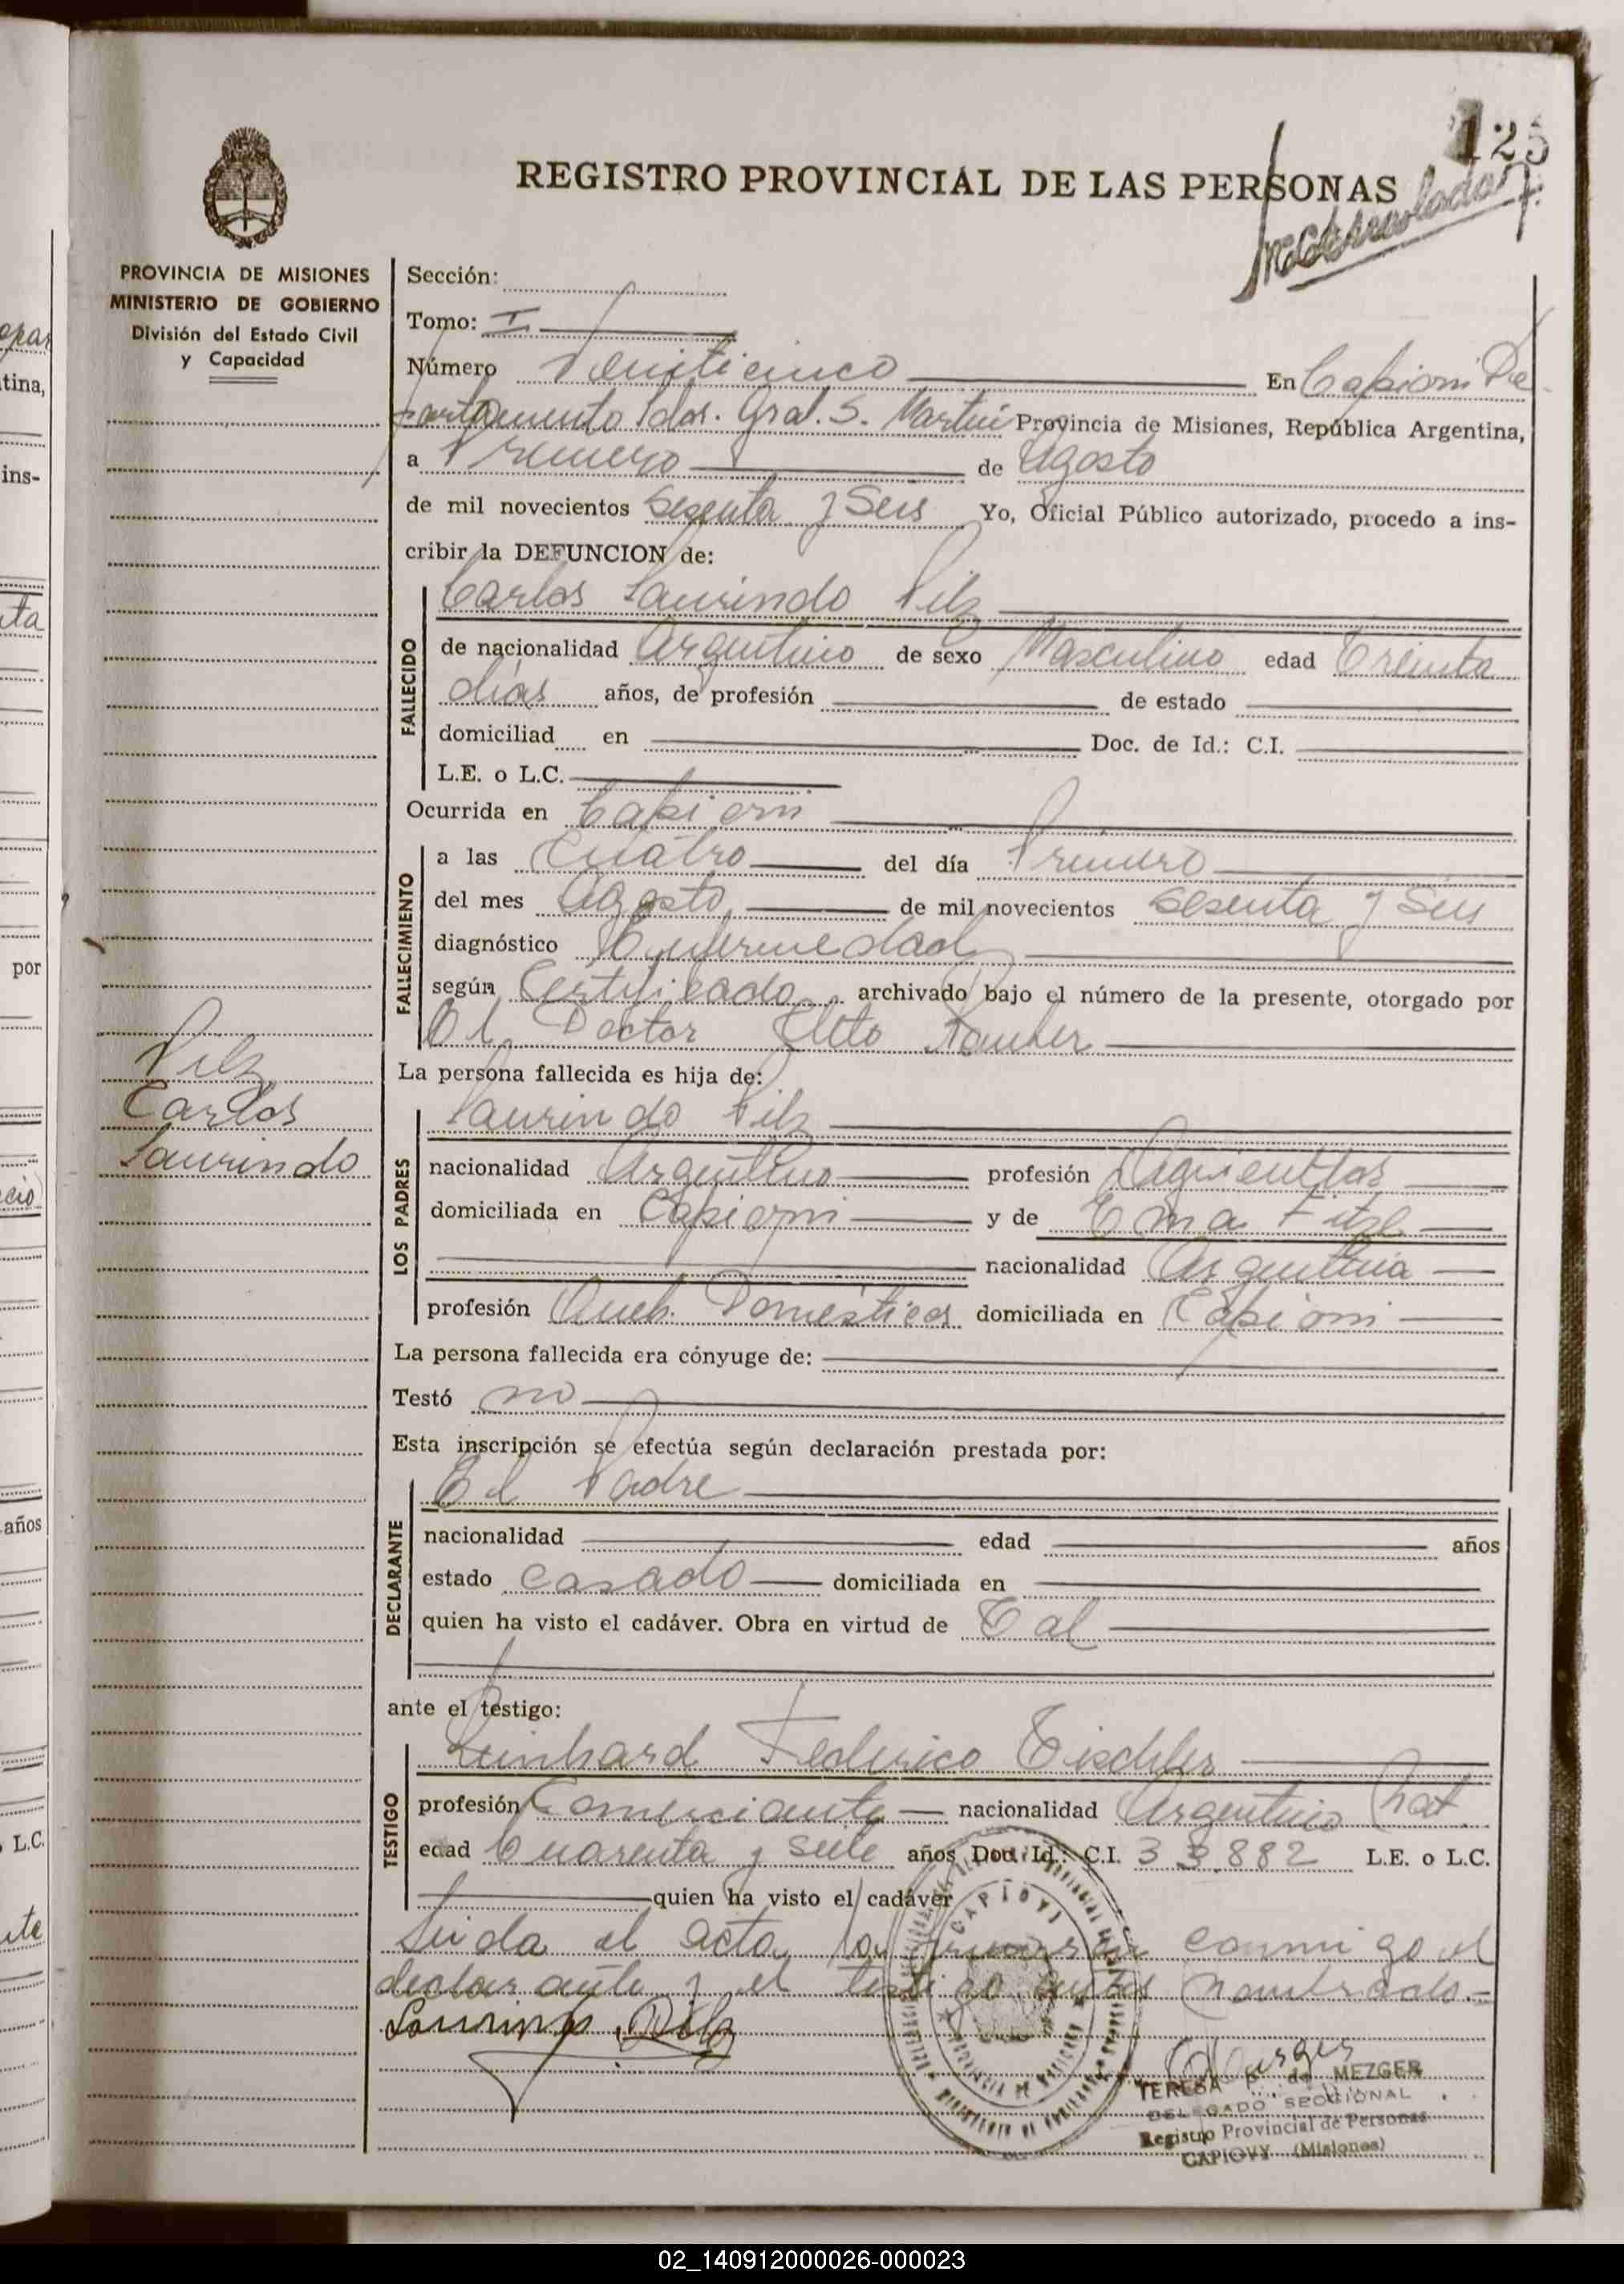 125
Matriculado
REGISTRO PROVINCIAL DE LAS PERSONAS
PROVINCIA DE MISIONES
MINISTERIO DE GOBIERNO
División del Estado Civil
y Capacidad
Sección:
Tomo: I
Número Veinticinco En Capiovi De
partamento Ldor. Gral. S. Martín Provincia de Misiones, República Argentina,
a Primero de Agosto
de mil novecientos Sesenta y Seis Yo, Oficial Público autorizado, procedo a ins-
cribir la DEFUNCION de:
Carlos Laurindo Pilz
FALLECIDO
de nacionalidad Argentino de sexo Masculino edad Treinta
días años, de profesión de estado
domiciliad en Doc. de Id.: C.I.
L.E. o L.C.
Ocurrida en Capiovi
FALLECIMIENTO
a las Cuatro del día Primero
del mes Agosto de mil novecientos Sesenta y Seis
diagnóstico Enfermedad
según Certificado archivado bajo el número de la presente, otorgado por
El Doctor Rauber
La persona fallecida es hija de:
Pilz
Carlos
Laurindo
LOS PADRES
Laurindo Pilz
nacionalidad Argentino profesión Agricultor
domiciliada en Capiovi y de Ema
nacionalidad Argentina
profesión Queh. Domésticos domiciliada en Capiovi
La persona fallecida era cónyuge de:
Testó no
Esta inscripción se efectúa según declaración prestada por:
DECLARANTE
El Padre
nacionalidad edad años
estado casado domiciliada en
quien ha visto el cadáver. Obra en virtud de Tal
ante el testigo:
TESTIGO
Leinhard Federico Tischler
profesión Comerciante nacionalidad Argentino Nat.
edad Cuarenta y siete años Doc. Id.: C.I. 33.882 L.E. o L.C.
quien ha visto el cadáver
Leida el acta, la firman conmigo el
declarante y el testigo antes nombrado.-
Laurindo Pilz
CAPIOVI
TERESA P. de MEZGER
DELEGADO SECCIONAL
Registro Provincial de Personas
CAPIOVY (Misiones)
02_140912000026-000023